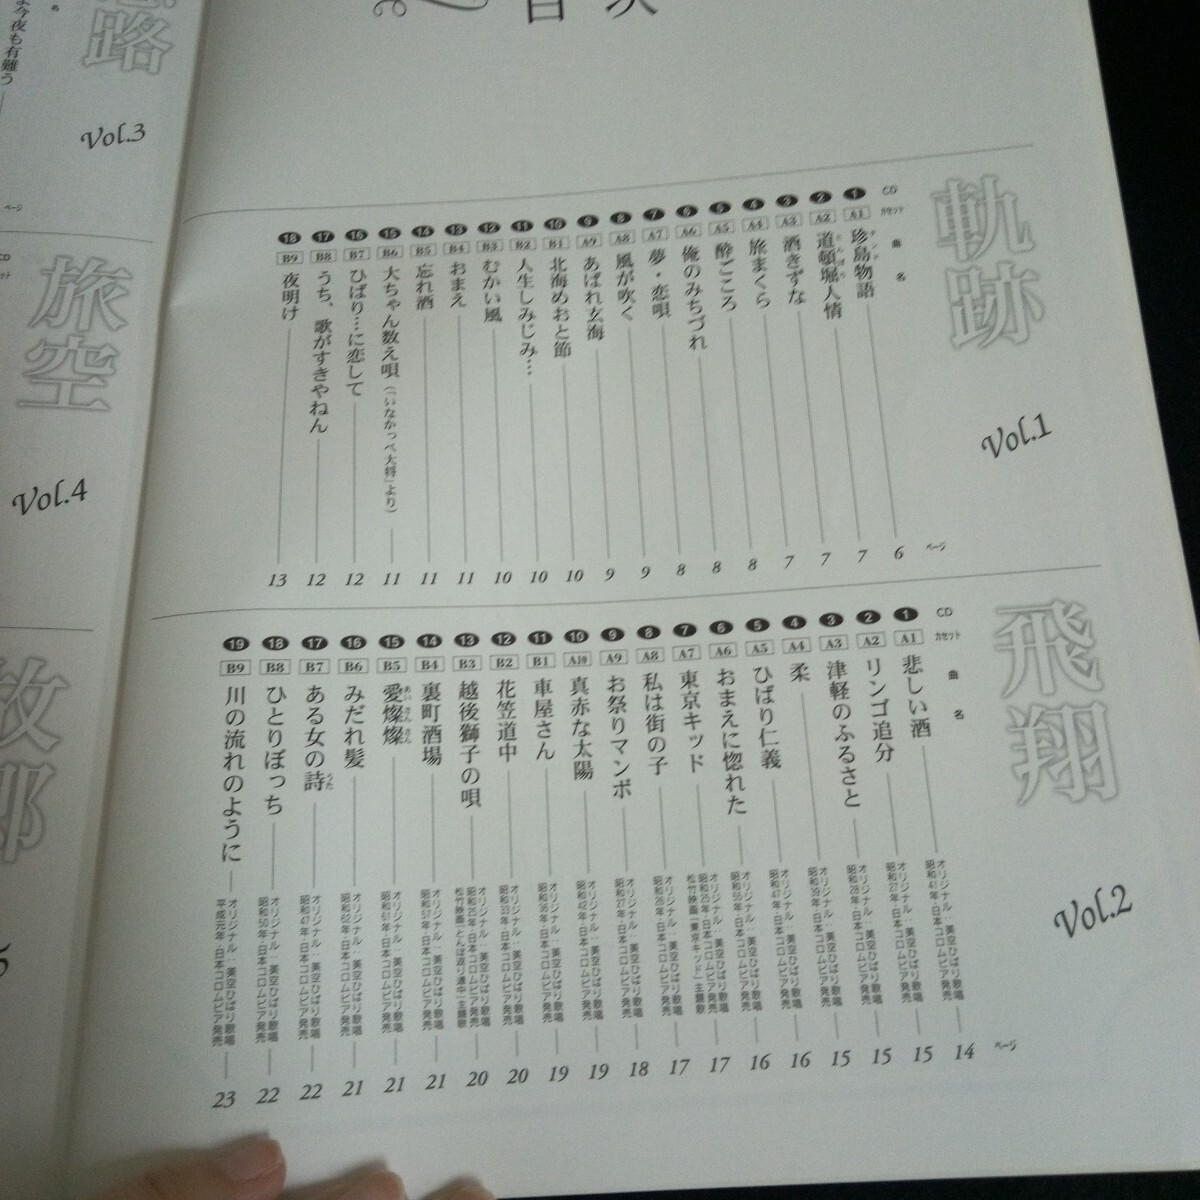 目次
軌跡
Vol.1
CD カセット 曲名 ページ
1 A1 珍島物語 6
2 A2 道頓堀人情 7
3 A3 酒きずな 7
4 A4 旅まくら 7
5 A5 酔ごころ 8
6 A6 俺のみちづれ 8
7 A7 夢・恋唄 8
8 A8 風が吹く 9
9 A9 あばれ玄海 9
10 B1 北海めおと節 10
11 B2 人生しみじみ… 10
12 B3 むかい風 10
13 B4 おまえ 11
14 B5 忘れ酒 11
15 B6 大ちゃん数え唄(「いなかっぺ大将」より) 11
16 B7 ひばり…に恋して 12
17 B8 うち、歌がすきやねん 12
18 B9 夜明け 13
飛翔
Vol.2
CD カセット 曲名 ページ
1 A1 悲しい酒 オリジナル:美空ひばり歌唱 昭和41年・日本コロムビア発売 14
2 A2 リンゴ追分 オリジナル:美空ひばり歌唱 昭和27年・日本コロムビア発売 15
3 A3 津軽のふるさと オリジナル:美空ひばり歌唱 昭和28年・日本コロムビア発売 15
4 A4 柔 オリジナル:美空ひばり歌唱 昭和39年・日本コロムビア発売 15
5 A5 ひばり仁義 オリジナル:美空ひばり歌唱 昭和47年・日本コロムビア発売 16
6 A6 おまえに惚れた オリジナル:美空ひばり歌唱 昭和55年・日本コロムビア発売 16
7 A7 東京キッド オリジナル:美空ひばり歌唱 昭和25年・日本コロムビア発売 松竹映画「東京キッド」主題歌 17
8 A8 私は街の子 オリジナル:美空ひばり歌唱 昭和26年・日本コロムビア発売 17
9 A9 お祭りマンボ オリジナル:美空ひばり歌唱 昭和27年・日本コロムビア発売 18
10 A10 真赤な太陽 オリジナル:美空ひばり歌唱 昭和42年・日本コロムビア発売 19
11 B1 車屋さん オリジナル:美空ひばり歌唱 昭和36年・日本コロムビア発売 19
12 B2 花笠道中 オリジナル:美空ひばり歌唱 昭和33年・日本コロムビア発売 20
13 B3 越後獅子の唄 オリジナル:美空ひばり歌唱 昭和25年・日本コロムビア発売 松竹映画「とんぼ返り道中」主題歌 20
14 B4 裏町酒場 オリジナル:美空ひばり歌唱 昭和57年・日本コロムビア発売 21
15 B5 愛燦燦 オリジナル:美空ひばり歌唱 昭和61年・日本コロムビア発売 21
16 B6 みだれ髪 オリジナル:美空ひばり歌唱 昭和62年・日本コロムビア発売 21
17 B7 ある女の詩 オリジナル:美空ひばり歌唱 昭和47年・日本コロムビア発売 22
18 B8 ひとりぼっち オリジナル:美空ひばり歌唱 昭和50年・日本コロムビア発売 22
19 B9 川の流れのように オリジナル:美空ひばり歌唱 平成元年・日本コロムビア発売 23
路
Vol.3
今夜も有難う
ページ
旅空
Vol.4